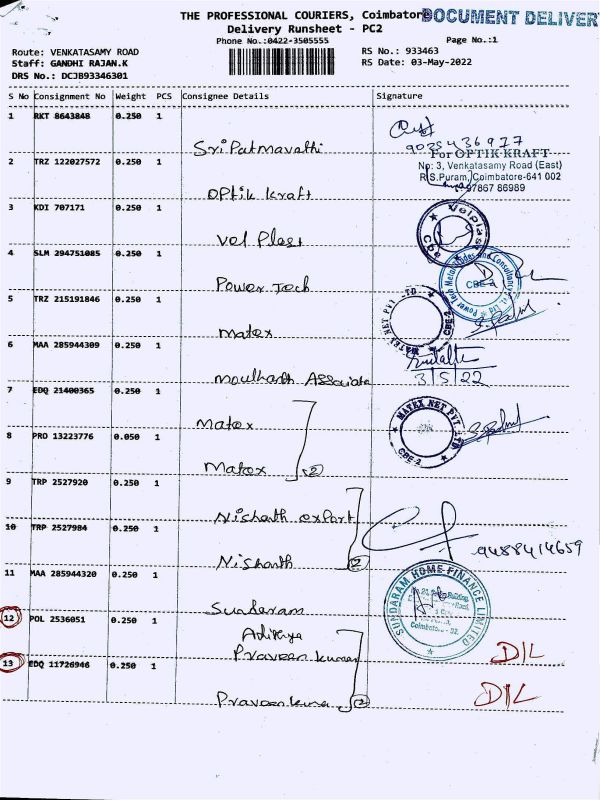 THE PROFESSIONAL COURIERS, Coimbatore
DOCUMENT DELIVER
Delivery Runsheet - PC2
Phone No.:0422-3505555
Page No.:1
Route: VENKATASAMY ROAD
RS No.: 933463
Staff: GANDHI RAJAN.K
RS Date: 03-May-2022
DRS No.: DCJB93346301
S No Consignment No Weight PCS Consignee Details Signature
1 RKT 8643848 0.250 1
Sri Patmavathi
2 TRZ 122027572 0.250 1
For OPTIK KRAFT
No: 3, Venkatasamy Road (East)
R.S.Puram, Coimbatore-641 002
97867 86989
Optik Kraft
3 KDI 707171 0.250 1
Vel Plast
Velplast
4 SLM 294751085 0.250 1
Power Tech
CBE-2
5 TRZ 215191846 0.250 1
Matex
CBE-2
6 MAA 285944309 0.250 1
Moulharth Associate
3/5/22
7 EDQ 21400365 0.250 1
Matex
MATEX NET PVT. LTD
CBE-2
8 PRO 13223776 0.050 1
Matex 2
9 TRP 2527920 0.250 1
Nishanth export
10 TRP 2527984 0.250 1
Nishanth 2
9488414659
11 MAA 285944320 0.250 1
Sundaram
SUNDARAM HOME FINANCE LIMITED
12 POL 2536051 0.250 1
Aditya
Praveen kumar
D/L
13 EDQ 11726946 0.250 1
Praveen kumar 2
D/L